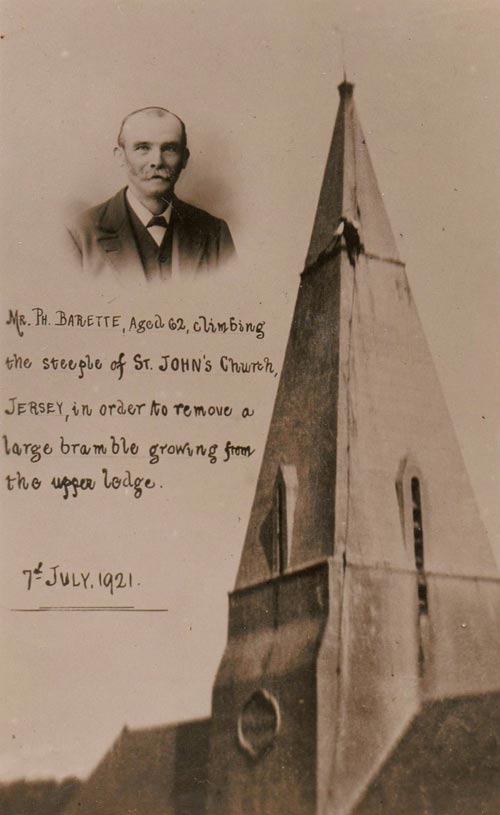 Mr. Ph. BARETTE, Aged 62, climbing
the steeple of St. JOHN's Church,
JERSEY, in order to remove a
large bramble growing from
the upper ledge.
7th JULY. 1921.